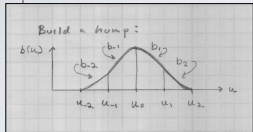 Build a hump:
b(u) b-2 b-1 b1 b2
u-2 u-1 u0 u1 u2 u